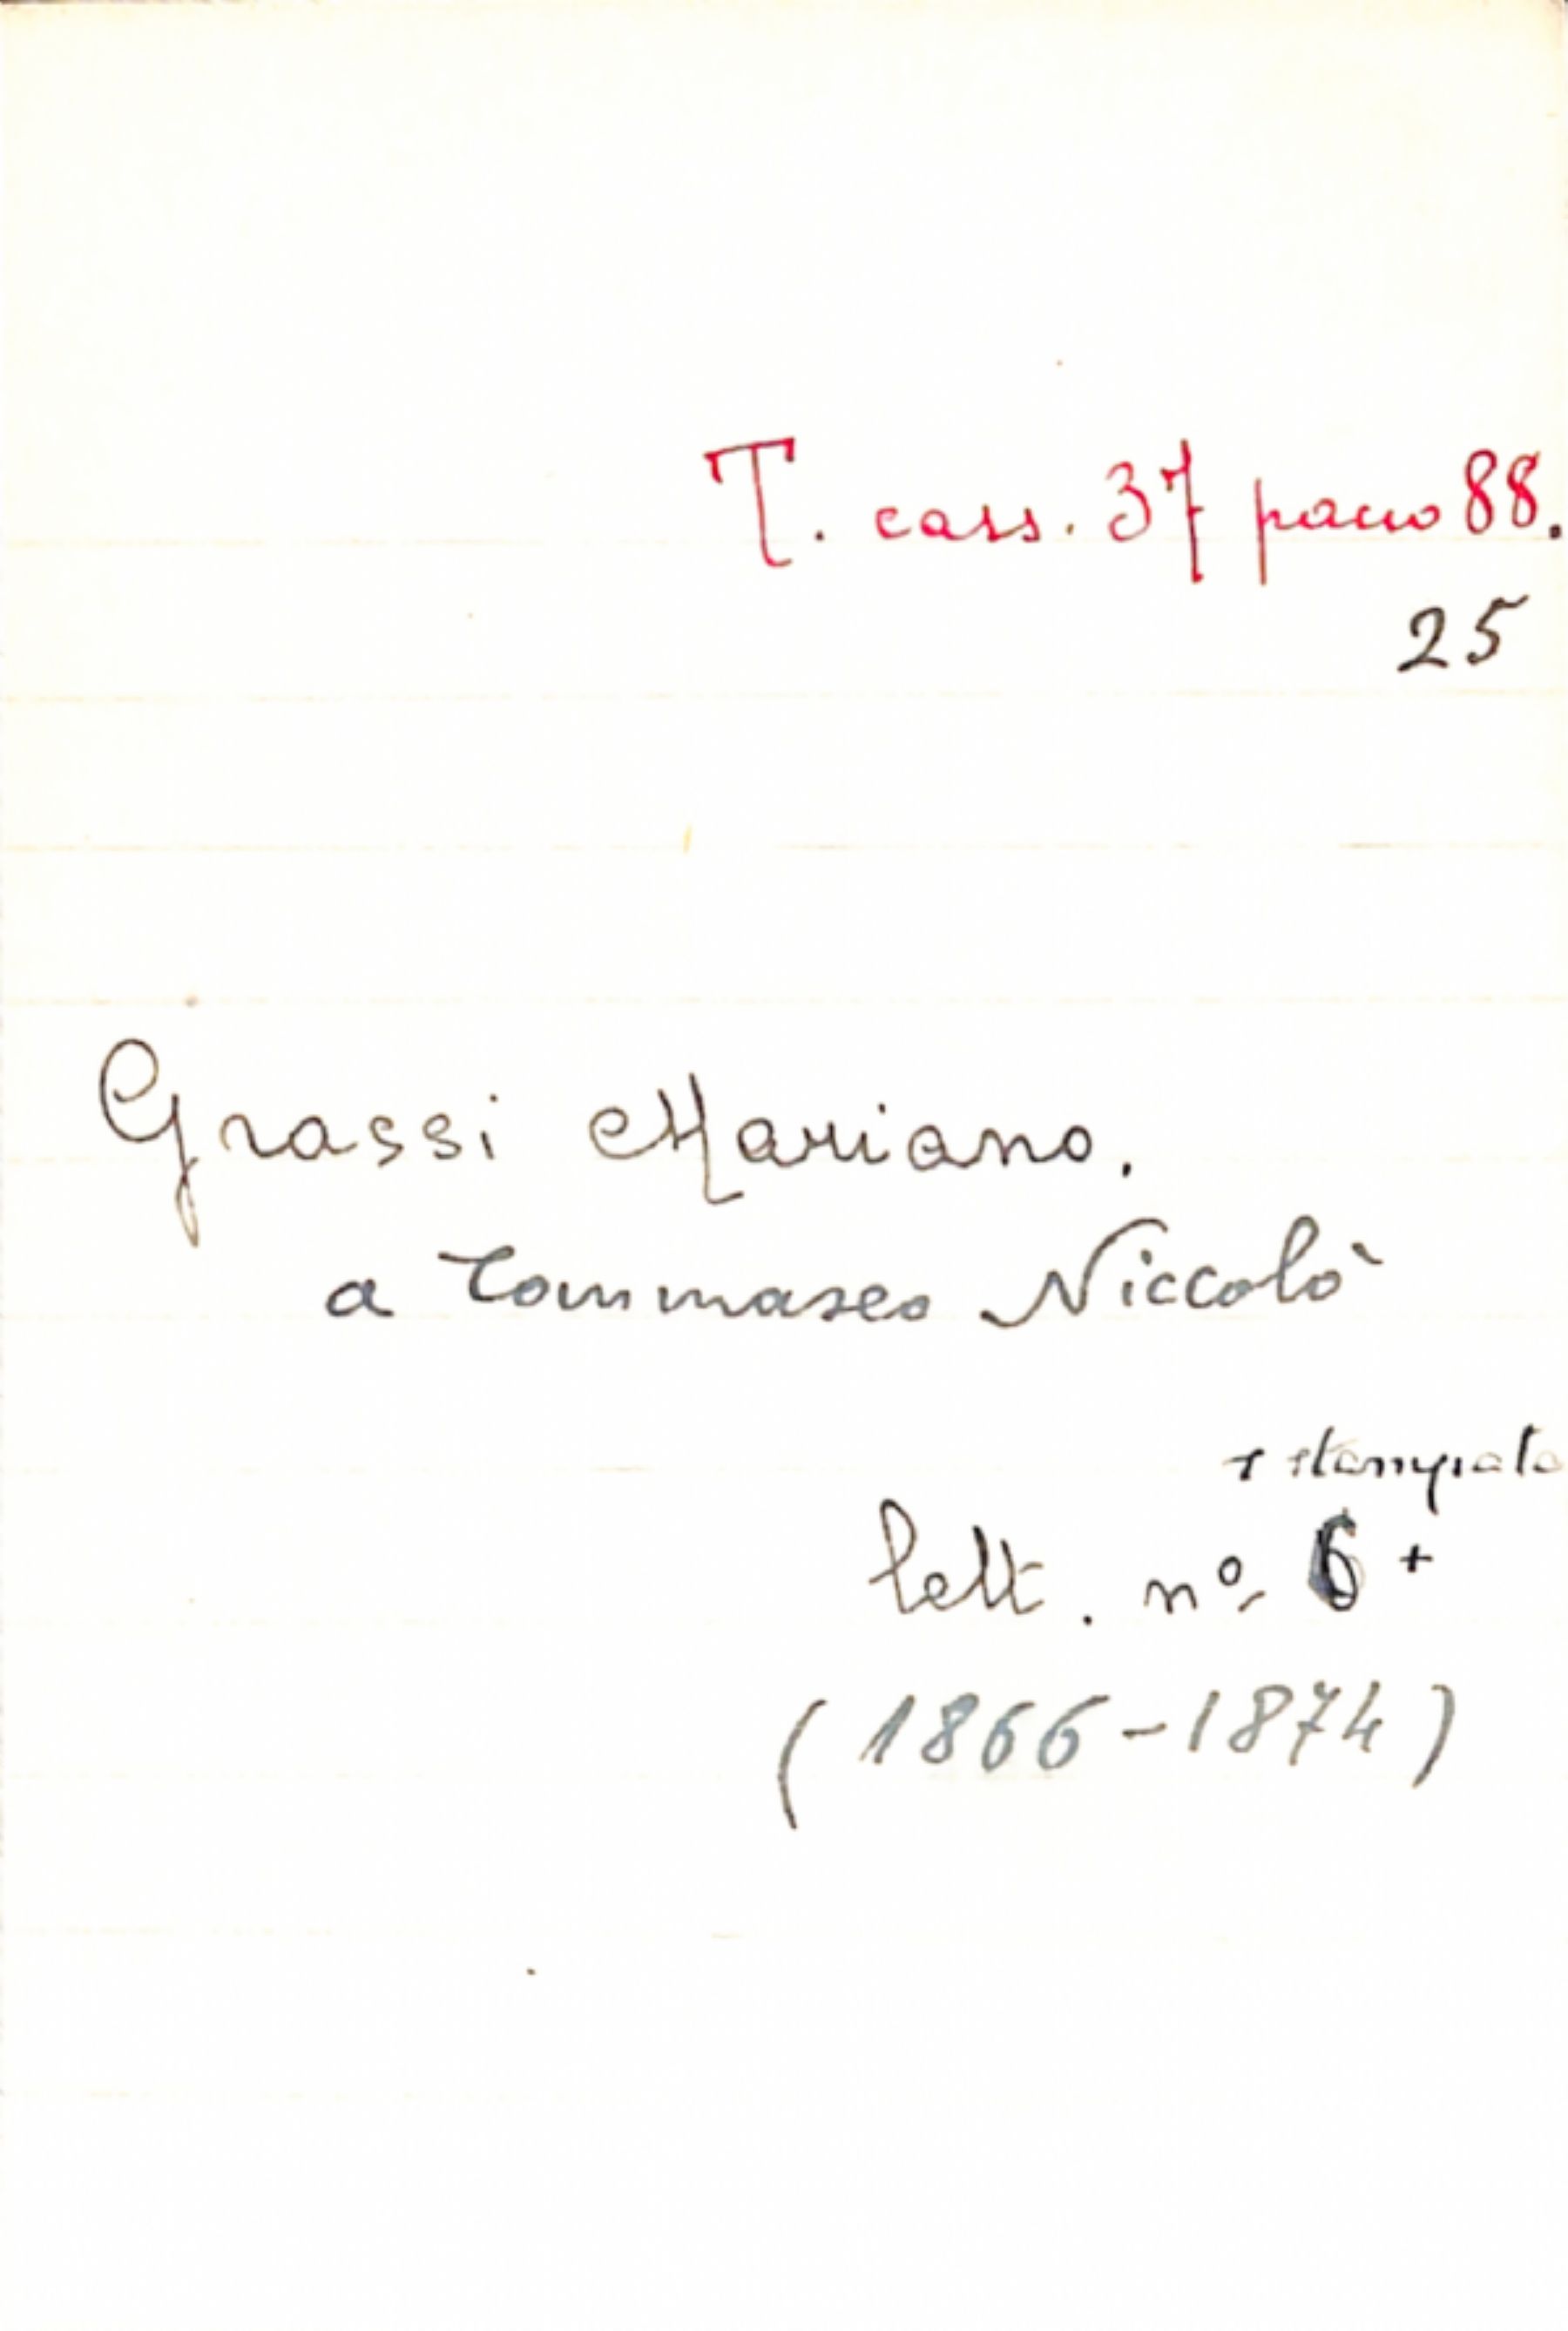 T. cass. 37 pacco 88.
25
Grassi Mariano.
a Tommaseo Niccolò
+ stampato
lett. nº 6 +
(1866-1874)